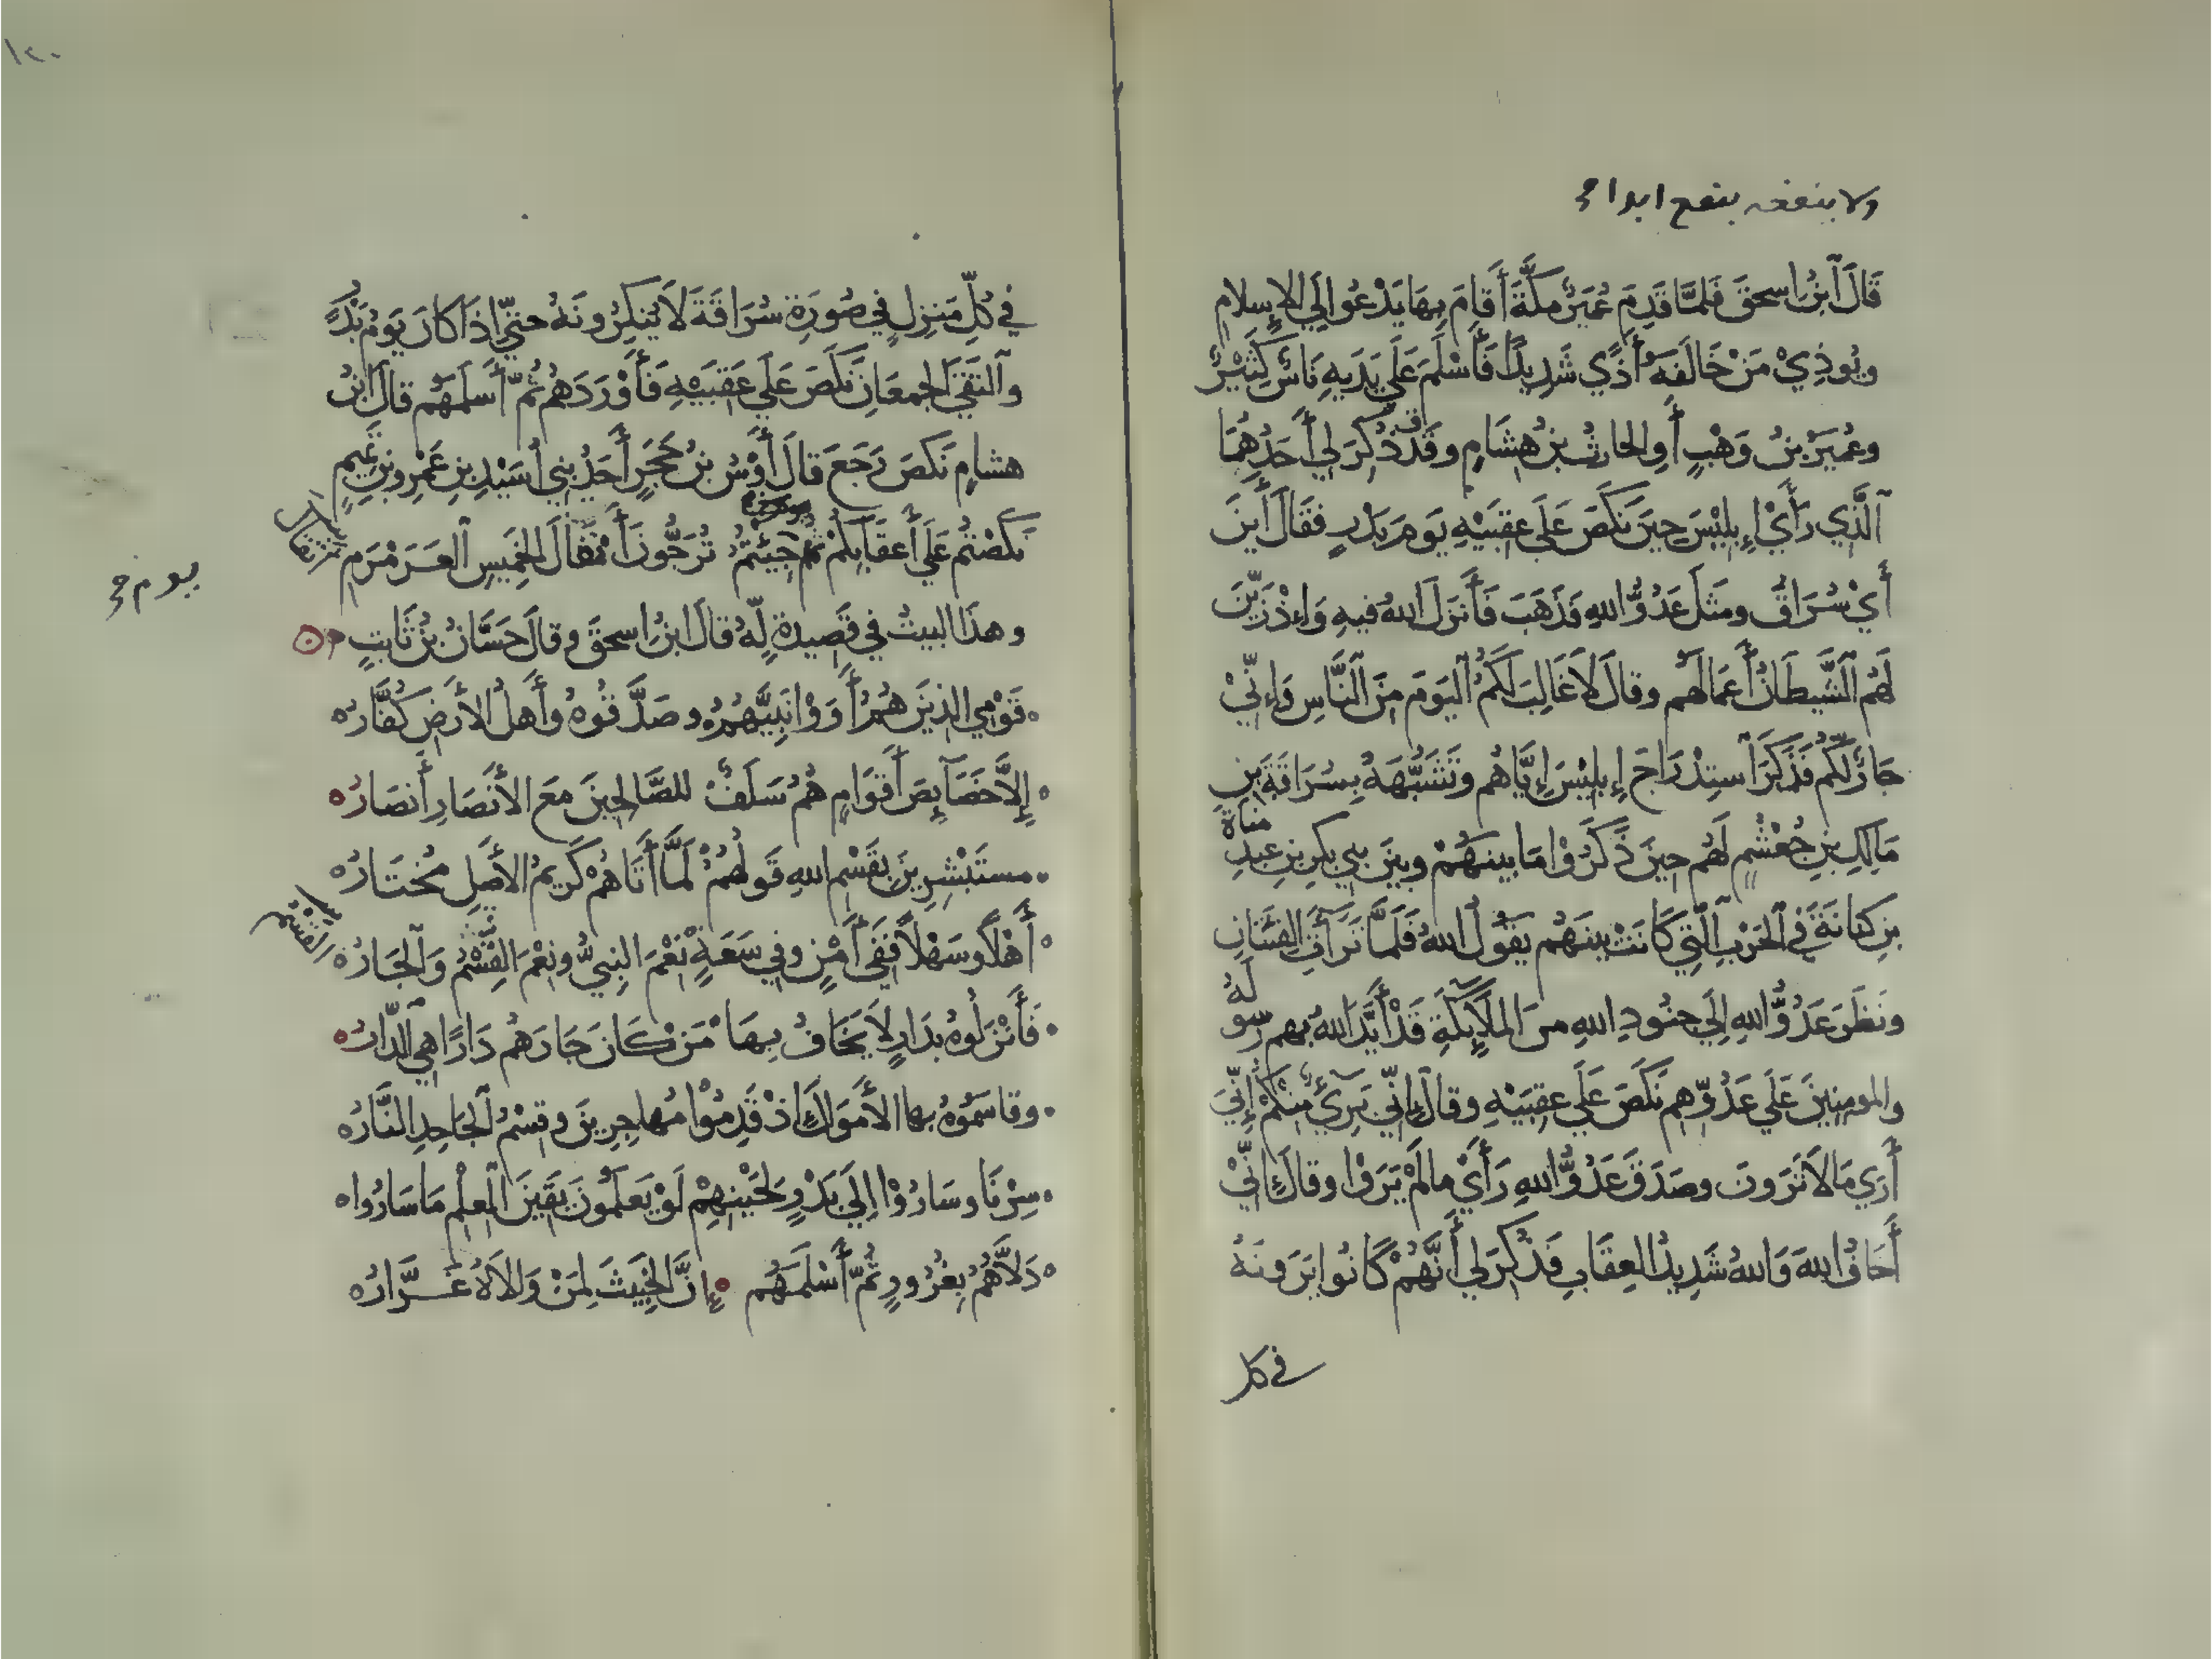 ولا ينفعه بنفع ابدا
قَالَ ٱبْنُ اسحقَ فَلمَّا قَدِمَ عُمَيْرٌ مكَّةَ أَقَامَ بِهَا يَدْعُوا إِلَي الإِسلامِ
ويُوذِيْ مَنْ خَالَفَهُ أَذًي شَدِيدًا فَأَسْلَمَ عَلَي يَدَيهِ نَاسٌ كَثِيْرٌ
وعُمَيْرُ بنُ وَهْبٍ أَوِ الحارثُ بنُ هِشَامٍ وقَدْ ذُكِرَ لِي أَحَدُهُمَا
ٱلَّذِي رَأَيْ إِبلِيْسَ حِينَ نَكَصَ عَلَي عقِبَيْهِ يَومَ بَدْرٍ فقَالَ أَينَ
أَيْ سُرَاقُ ومَثَلَ عَدُوُّ اللهِ فَذَهَبَ فَأَنزَلَ اللهُ فيهِ وَإِذْ زَيَّنَ
لَهُم ٱلشَّيطَانُ أَعمَالَهُم وقالَ لاَ غَالِبَ لَكُمُ ٱليَومَ مِنَ ٱلنَّاسِ وَإِنِّيْ
جَارٌ لَكُم فَذَكَرَ ٱستِدْرَاجَ إِبلِيْسَ إِيَّاهُم وتَشَبُّهَهُ بِسُرَاقَةَ بنِ
مَالِكِ بنِ جُعْشُمٍ لَهُم حِينَ ذَكَرُوْا مَا بينَهُمْ وبينَ بنِي بكرِ بنِ عبدِ مناة
بنِ كنانَةَ فِي ٱلحَرْبِ ٱلَّتِي كَانَتْ بينَهُم يَقُولُ ٱللهُ فَلَمَّا تَرَآءَتِ الفِئَتَانِ
ونَظَرَ عَدُوُّ اللهِ إِلَي جنُودِ اللهِ منَ الملاَئِكَةِ قَدْ أَيَّدَ اللهُ بهم رسولَهُ
والمومِنِينَ عَلَي عَدُوِّهِم نَكَصَ عَلَي عقِبَيْهِ وقالَ إِنِّي بَرِيٓءٌ مِنْكُمْ إِنِّيَ
أَرَي مَا لاَ تَرَونَ وصَدَقَ عَدُوُّ اللهِ رَأَيْ مالَمْ يَرَوْا وقالَ إِنِّيْ
أَخَافُ اللهَ وَاللهُ شَدِيدُ العِقَابِ فَذُكِرَ لِي أَنَّهُمْ كَانُوا يَرَونَهُ
في كل
١٢٠
في كُلِّ مَنزِلٍ فِي صُورَةِ سُرَاقَةَ لاَ يُنكِرُونَهُ حتيّ إِذَا كَانَ يَومُ بَدْرٍ
وٱلتَقَيَ الجمعَانِ نَكَصَ عَلَي عَقِبَيْهِ فَأَوْرَدَهُم ثُمّ أَسلَمَهُم قالَ ابنُ
هشامٍ نَكَصَ رَجَعَ قالَ أَوْسُ بنُ حَجَرٍ أَحَدُ بنِي أُسَيْدِ بنِ عَمْرِو بنِ تَمِيمٍ
نَكَصْتُم عَلَي أَعقَابِكُمْ ثُمَّ جِيْئْتُمُ تُرَجُّونَ أَنْفَالَ الخَمِيسِ ٱلعَرَمْرَمِ
يوم
وهذَا البيتُ في قَصِيدةٍ لّهُ قالَ ابنُ اسحقَ وقالَ حَسَّانُ بنُ ثَابتٍ
قَوْمِي الذِينَ هُمُ أَوَوْا نَبِيَّهُمُ وصَدَّقُوهُ وأَهلُ الأَرضِ كُفَّارُ
إِلاَّ خَصَآئِصَ أَقوَامٍ هُمُ سَلَفٌ للصَّالِحِينَ معَ الأنصَارِ أَنصَارُ
مستَبْشِرِينَ بقَسْمِ اللهِ قَولُهُمُ لَمَّا أَتَاهُمْ كَرِيمُ الأَصلِ مُختَارُ
أَهْلاً وسَهْلاً فَفِي أَمْنٍ وفي سَعَةٍ نعْمَ النبِيُّ ونِعْمَ القِسْمُ وَالجَارُ
فَأَنْزَلُوهُ بدَارٍ لاَ يَخَافُ بِهَا مَنْ كَانَ جَارَهُم دَارًا هِي ٱلدّارُ
وقاسَمُوهُ بها الأَموَالَ إِذْ قَدِمُوْا مُهاجِرِينَ وقِسْمُ ٱلجَاحِدِ النَّارُ
سِرْنَا وسَارُوْا إِلَي بَدْرٍ لِحَيْنِهِمُ لَوْ يَعلَمُونَ يَقِينَ ٱلعِلْمِ مَا سَارُوا
دَلاَّهُمُ بِغُرُورٍ ثُمّ أَسْلَمَهُم إِنَّ الخَبِيثَ لِمَنْ وَالاَهُ غَرَّارُ